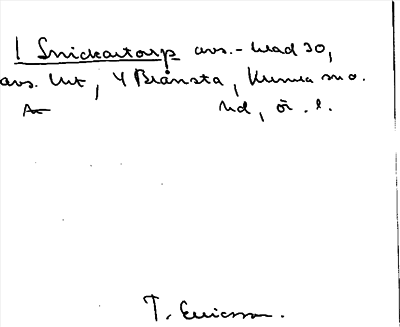 1 Snickartorp avs.-bad 30,
avs. Unt, Y Brånsta, Kumla sn o.
hd, ör. l.
T. Ericsson.